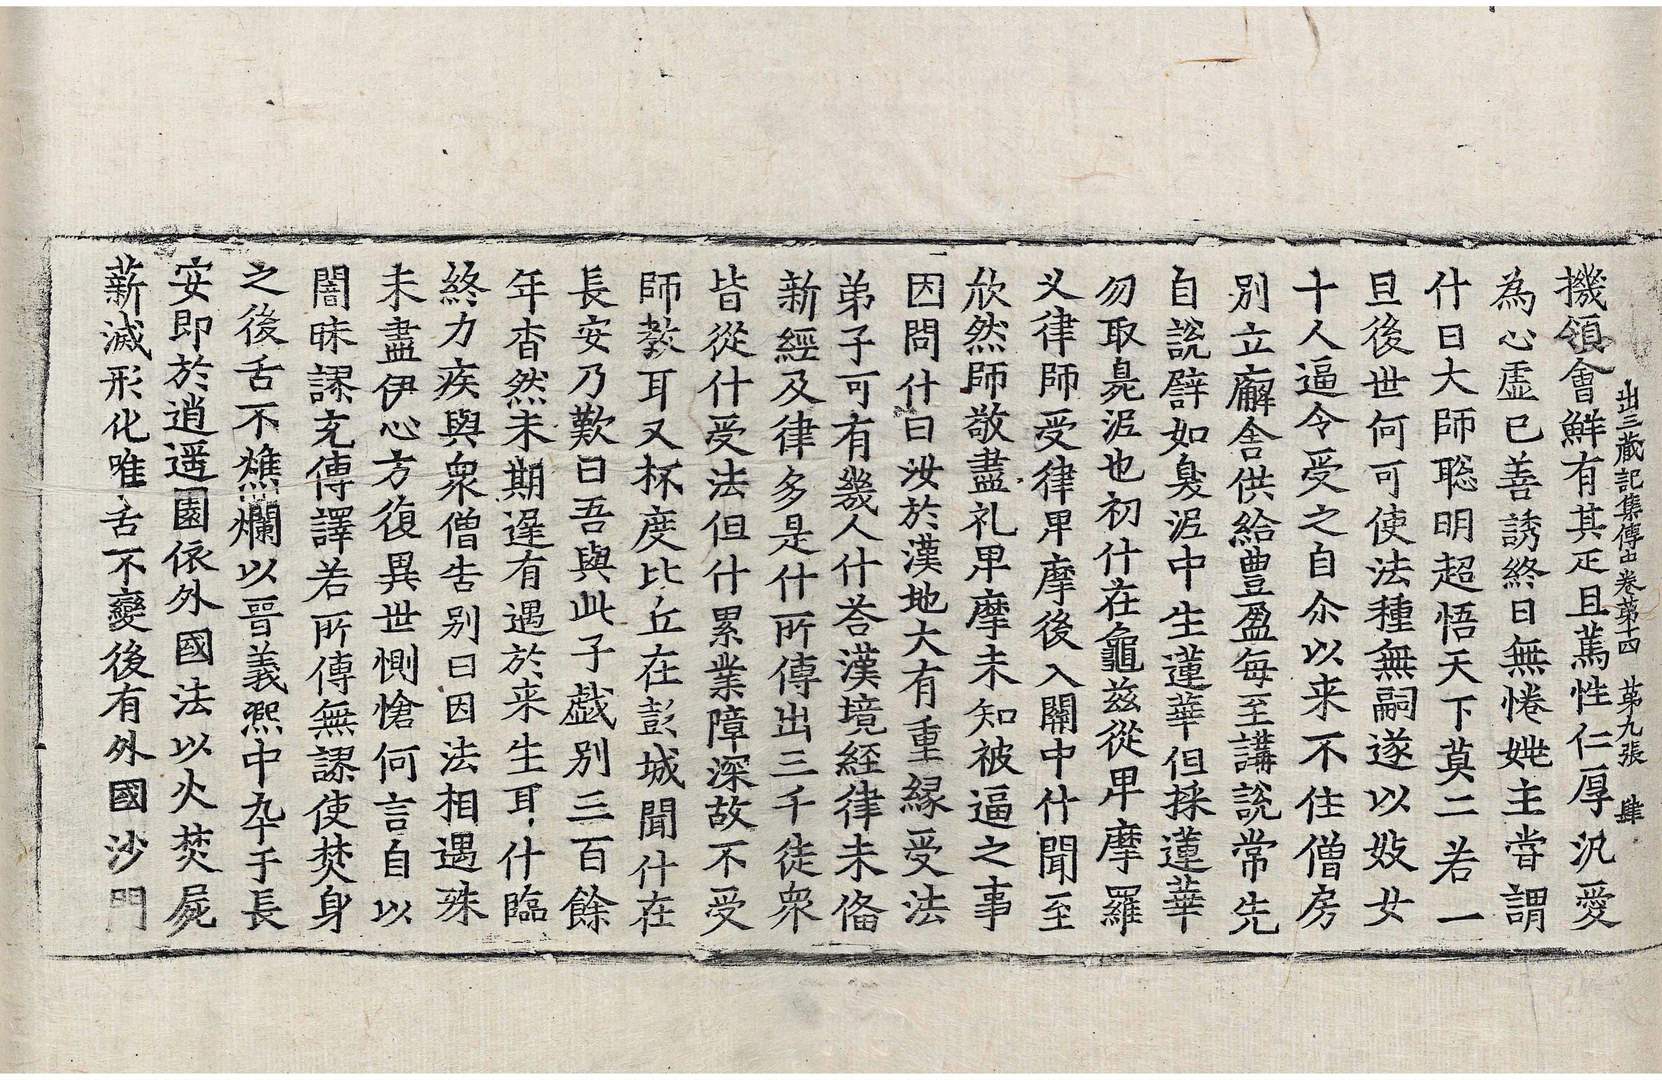 出三藏記集傳中卷第十四　第九張　肆
機領會鮮有其疋且篤性仁厚汎愛
為心虛已善誘終日無惓姚主甞謂
什曰大師聡明超悟天下莫二若一
旦後世何可使法種無嗣遂以妓女
十人逼令受之自尒以来不住僧房
別立廨舍供給豊盈每至講說常先
自說譬如臰泥中生蓮華但採蓮華
勿取臰泥也初什在龜茲從卑摩羅
义律師受律卑摩後入關中什聞至
欣然師敬盡礼卑摩未知被逼之事
因問什曰汝於漢地大有重緣受法
弟子可有幾人什荅漢境経律未俻
新經及律多是什所傳出三千徒衆
皆從什受法但什累業障深故不受
師教耳又杯度比丘在彭城聞什在
長安乃歎曰吾與此子戯別三百餘
年杳然未期遅有遇於来生耳什臨
終力疾與衆僧告別曰因法相遇殊
未盡伊心方復異世惻愴何言自以
闇昧謬充傳譯若所傳無謬使焚身
之後舌不燋爛以晉義熙中卒于長
安即於逍遥園依外國法以火焚屍
薪滅形化唯舌不變後有外國沙門